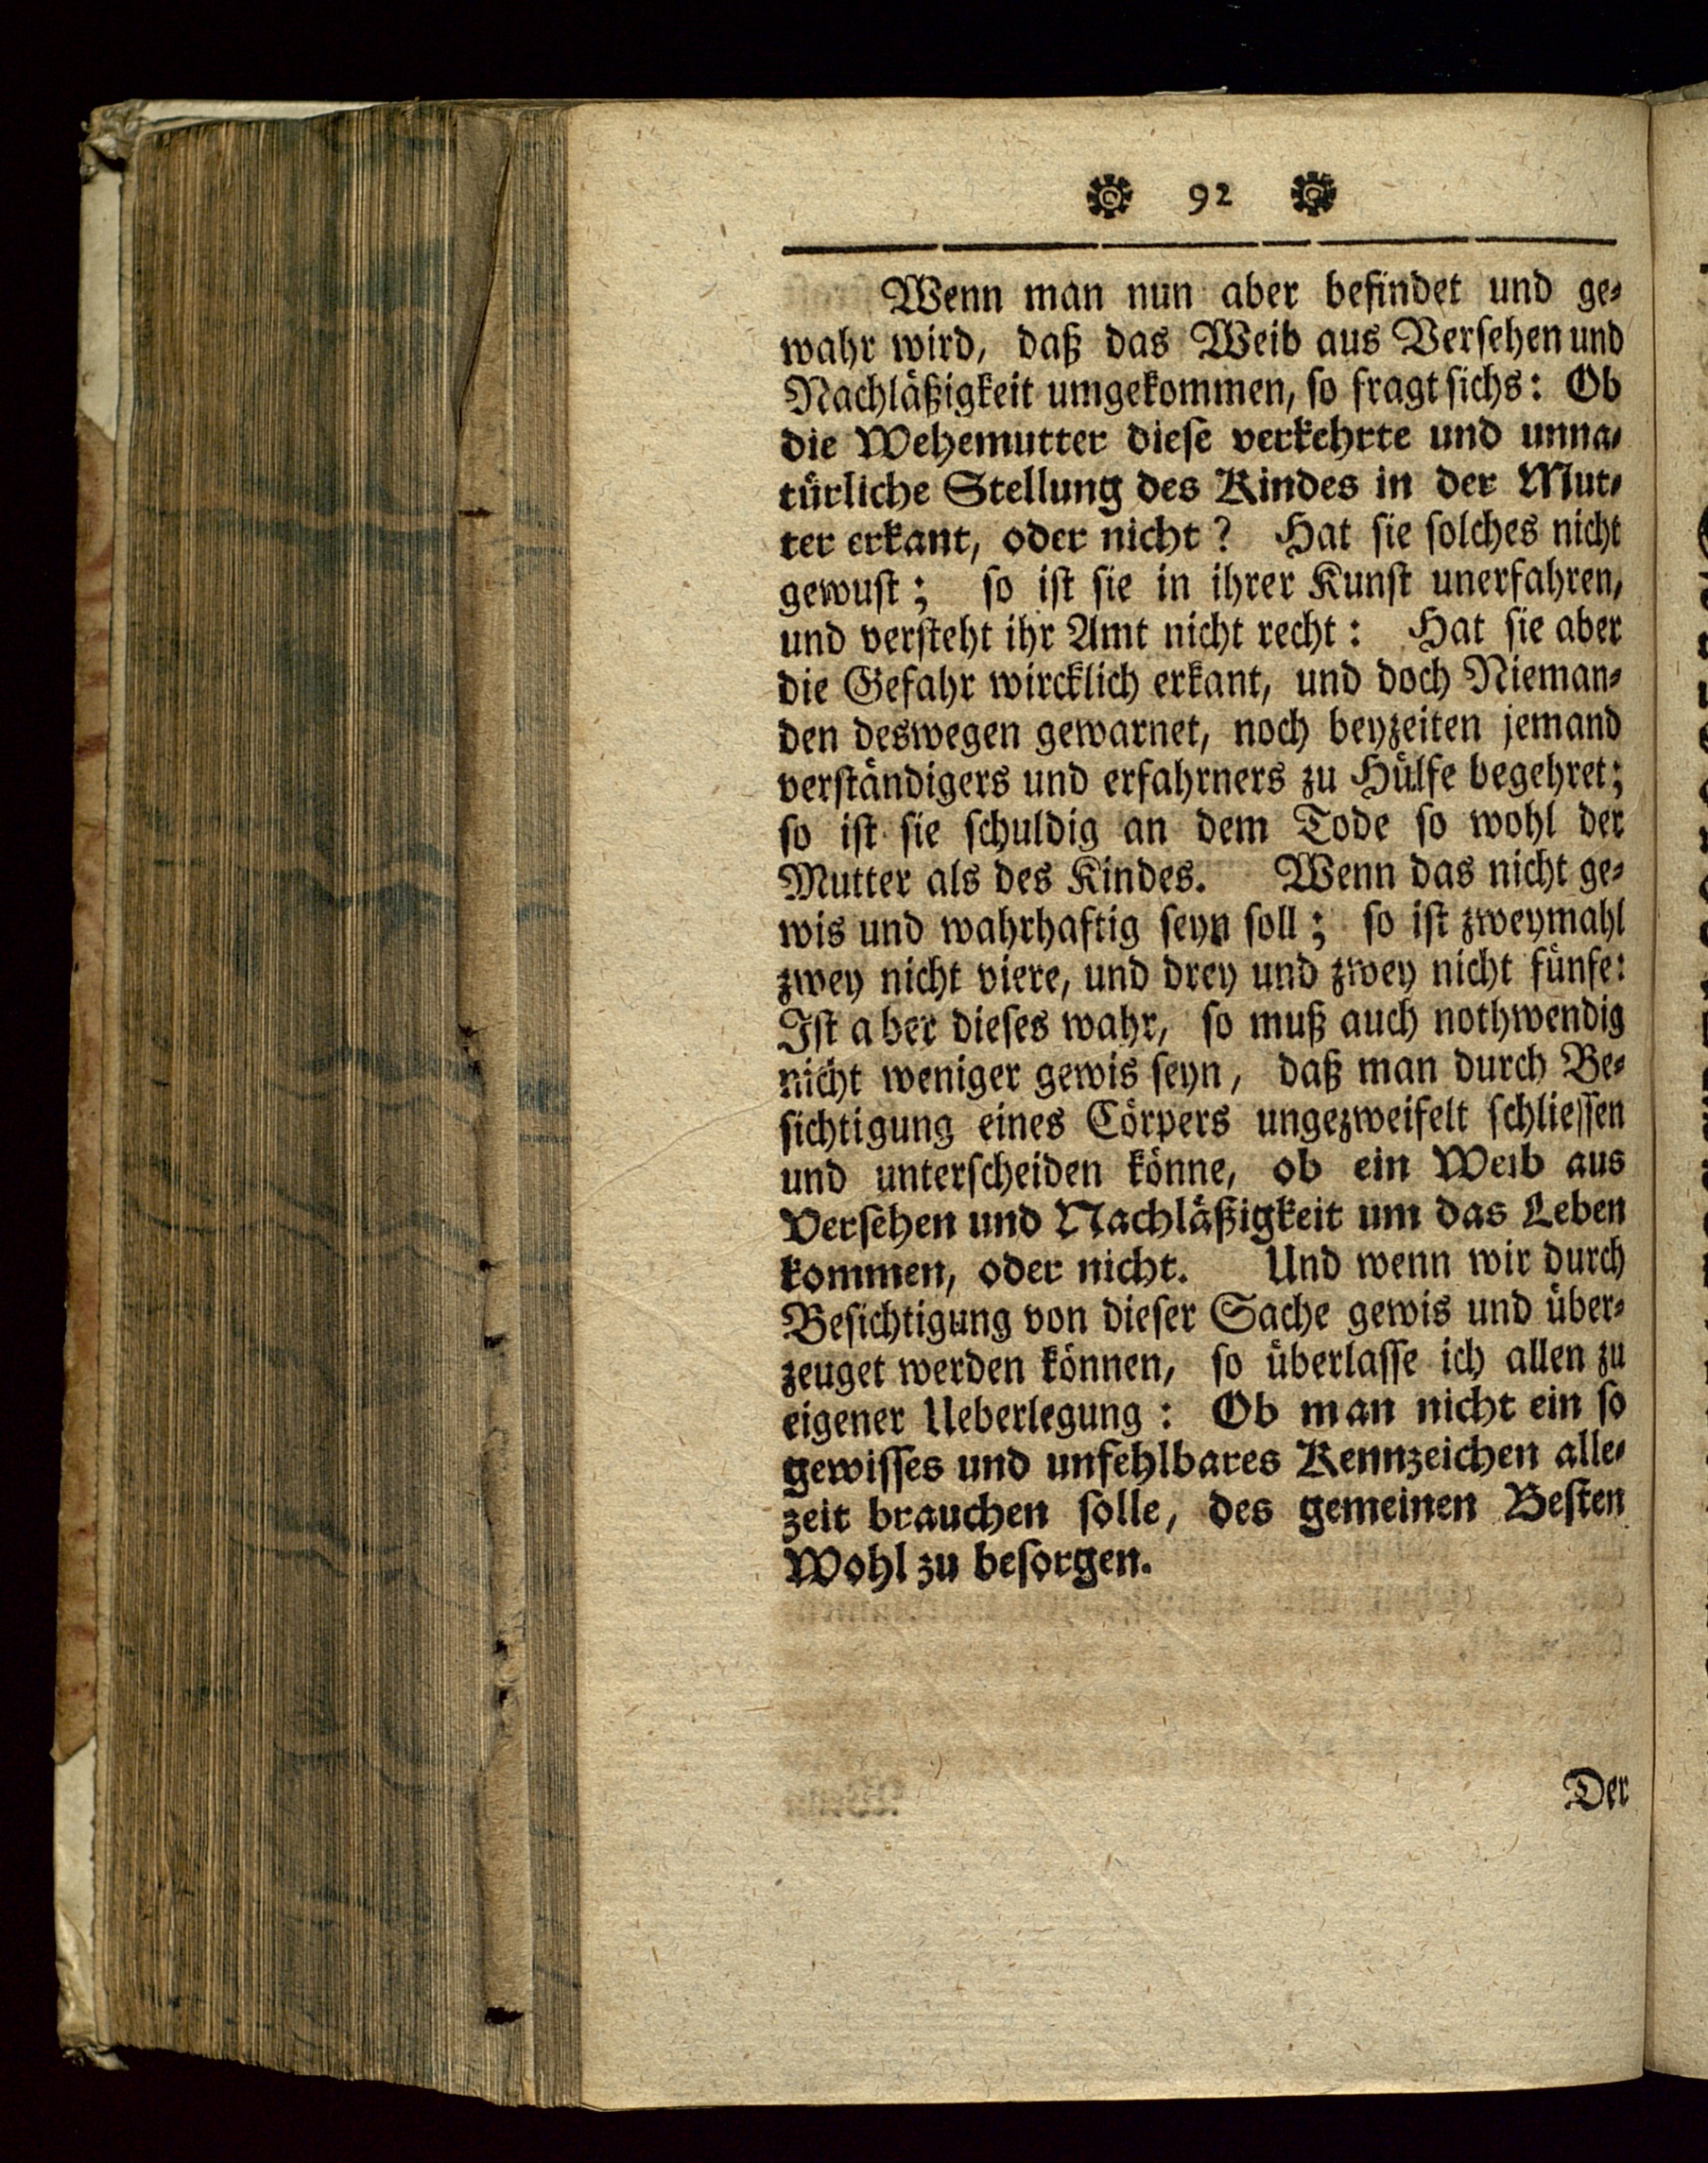 92
Wenn man nun aber befindet und ge-
wahr wird, daß das Weib aus Versehen und
Nachläßigkeit umgekommen, so fragt sichs: Ob
die Wehemutter diese verkehrte und unna-
türliche Stellung des Kindes in der Mut-
ter erkant, oder nicht? Hat sie solches nicht
gewust; so ist sie in ihrer Kunst unerfahren,
und versteht ihr Amt nicht recht: Hat sie aber
die Gefahr wircklich erkant, und doch Nieman-
den deswegen gewarnet, noch beyzeiten jemand
verständigers und erfahrners zu Hülfe begehret;
so ist sie schuldig an dem Tode so wohl der
Mutter als des Kindes. Wenn das nicht ge-
wis und wahrhaftig seyn soll; so ist zweymahl
zwey nicht viere, und drey und zwey nicht fünfe:
Ist aber dieses wahr, so muß auch nothwendig
nicht weniger gewis seyn, daß man durch Be-
sichtigung eines Cörpers ungezweifelt schliessen
und unterscheiden könne, ob ein Weib aus
Versehen und Nachläßigkeit um das Leben
kommen, oder nicht. Und wenn wir durch
Besichtigung von dieser Sache gewis und über-
zeuget werden können, so überlasse ich allen zu
eigener Ueberlegung: Ob man nicht ein so
gewisses und unfehlbares Kennzeichen alle-
zeit brauchen solle, des gemeinen Besten
Wohl zu besorgen.
Der